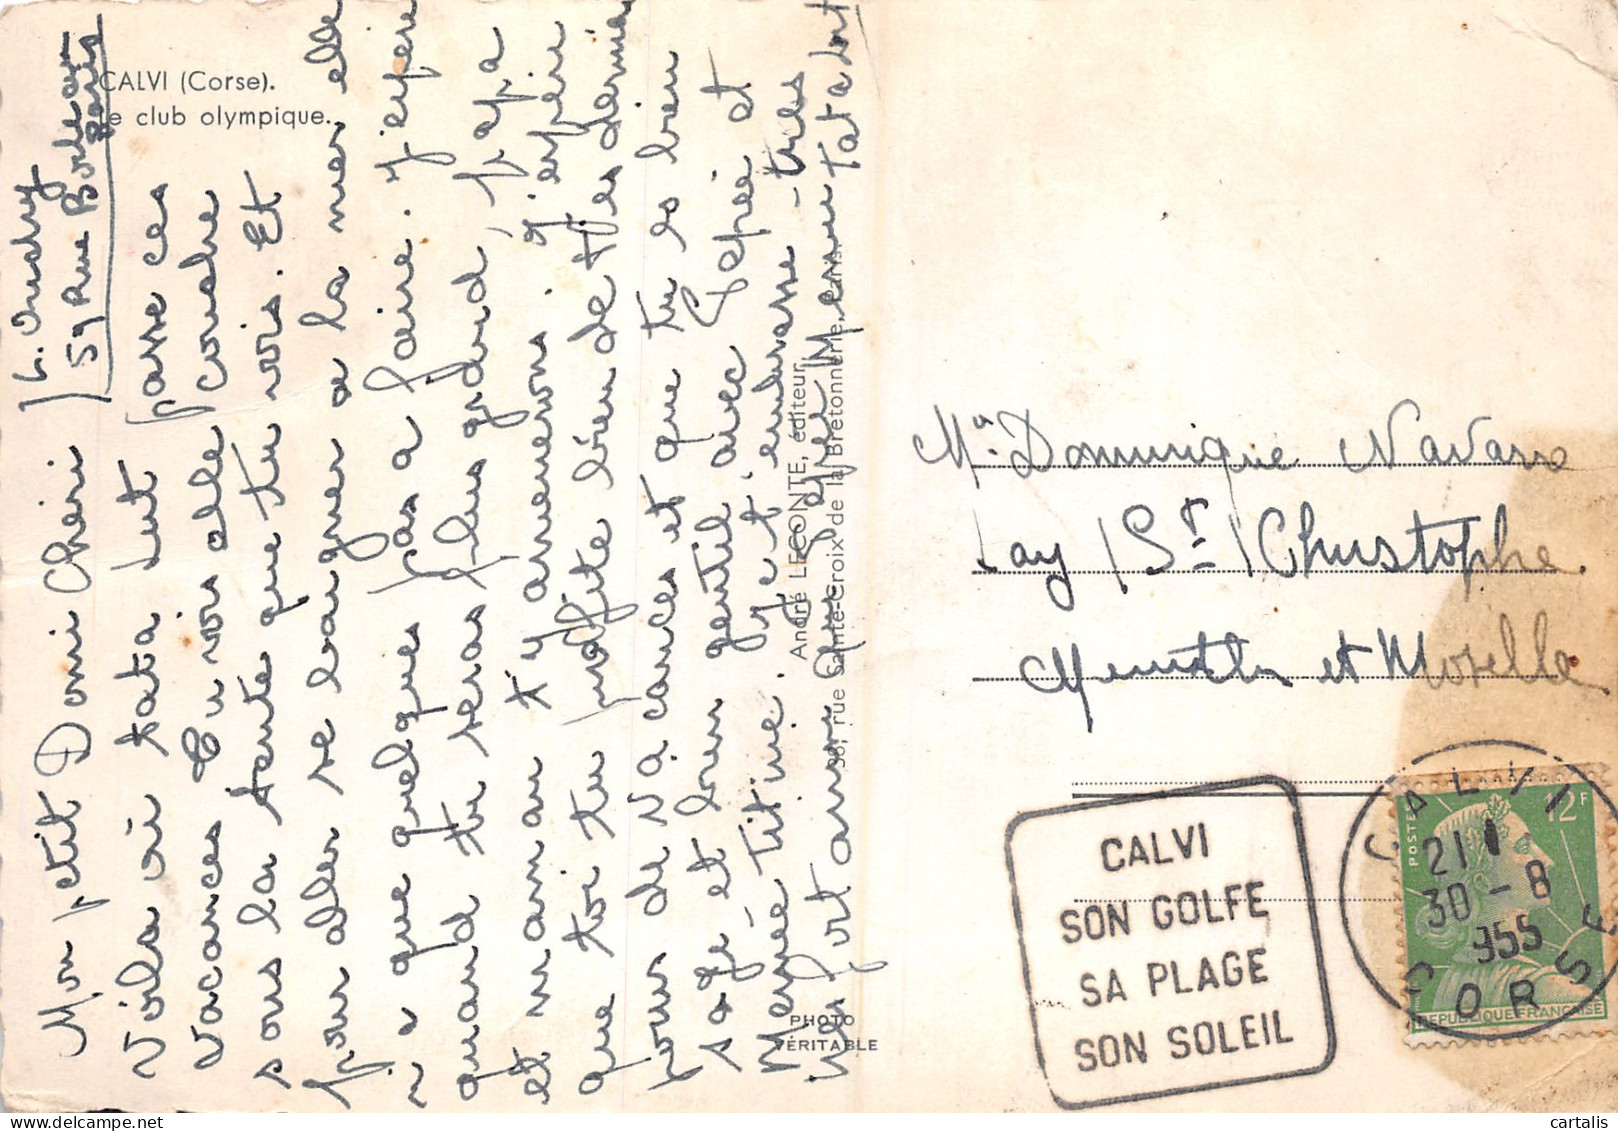 CALVI (Corse).
Le club olympique.
59 Rue Boileau
Paris
Mon petit Domi Chéri
Voila où tata Lut passe ces
vacances Tu vois elle couche
sous la tente que tu vois. Et
pour aller se baigner a la mer elle
n a que quelques pas a faire. J'espère
quand tu seras plus grand, papa
et maman t'y amenerons. J'espère
que toi tu profite bien de tes dernier
jours de vacances et que tu es bien
sage et bien gentil avec Pépée et
Mémée Titine. Je t'embrasse très
fort ainsi que Pépée Mémé Tata Lut
André LECONTE, éditeur
38, rue Sainte-Croix de la Bretonnerie,
PHOTO
VÉRITABLE
Mr. Dominique Navarro
Lay St Christophe
Meurthe et Moselle
CALVI
SON GOLFE
SA PLAGE
SON SOLEIL
CALVI
21
30 - 8
955
CORSE
POSTES
12F
REPUBLIQUE FRANÇAISE
cartalis